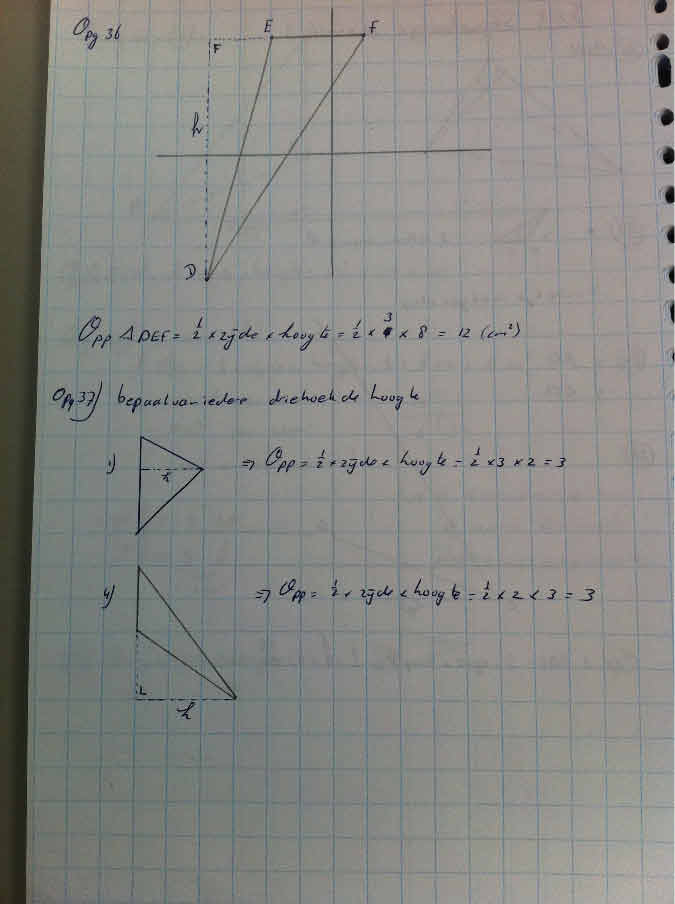 Opg 36
E F
F
h
D
Opp Δ DEF = ½ × zijde × hoogte = ½ × 3 × 8 = 12 (cm²)
Opg 37) bepaal van iedere driehoek de hoogte
1) h => Opp = ½ × zijde × hoogte = ½ × 3 × 2 = 3
4) => Opp = ½ × zijde × hoogte = ½ × 2 × 3 = 3
h